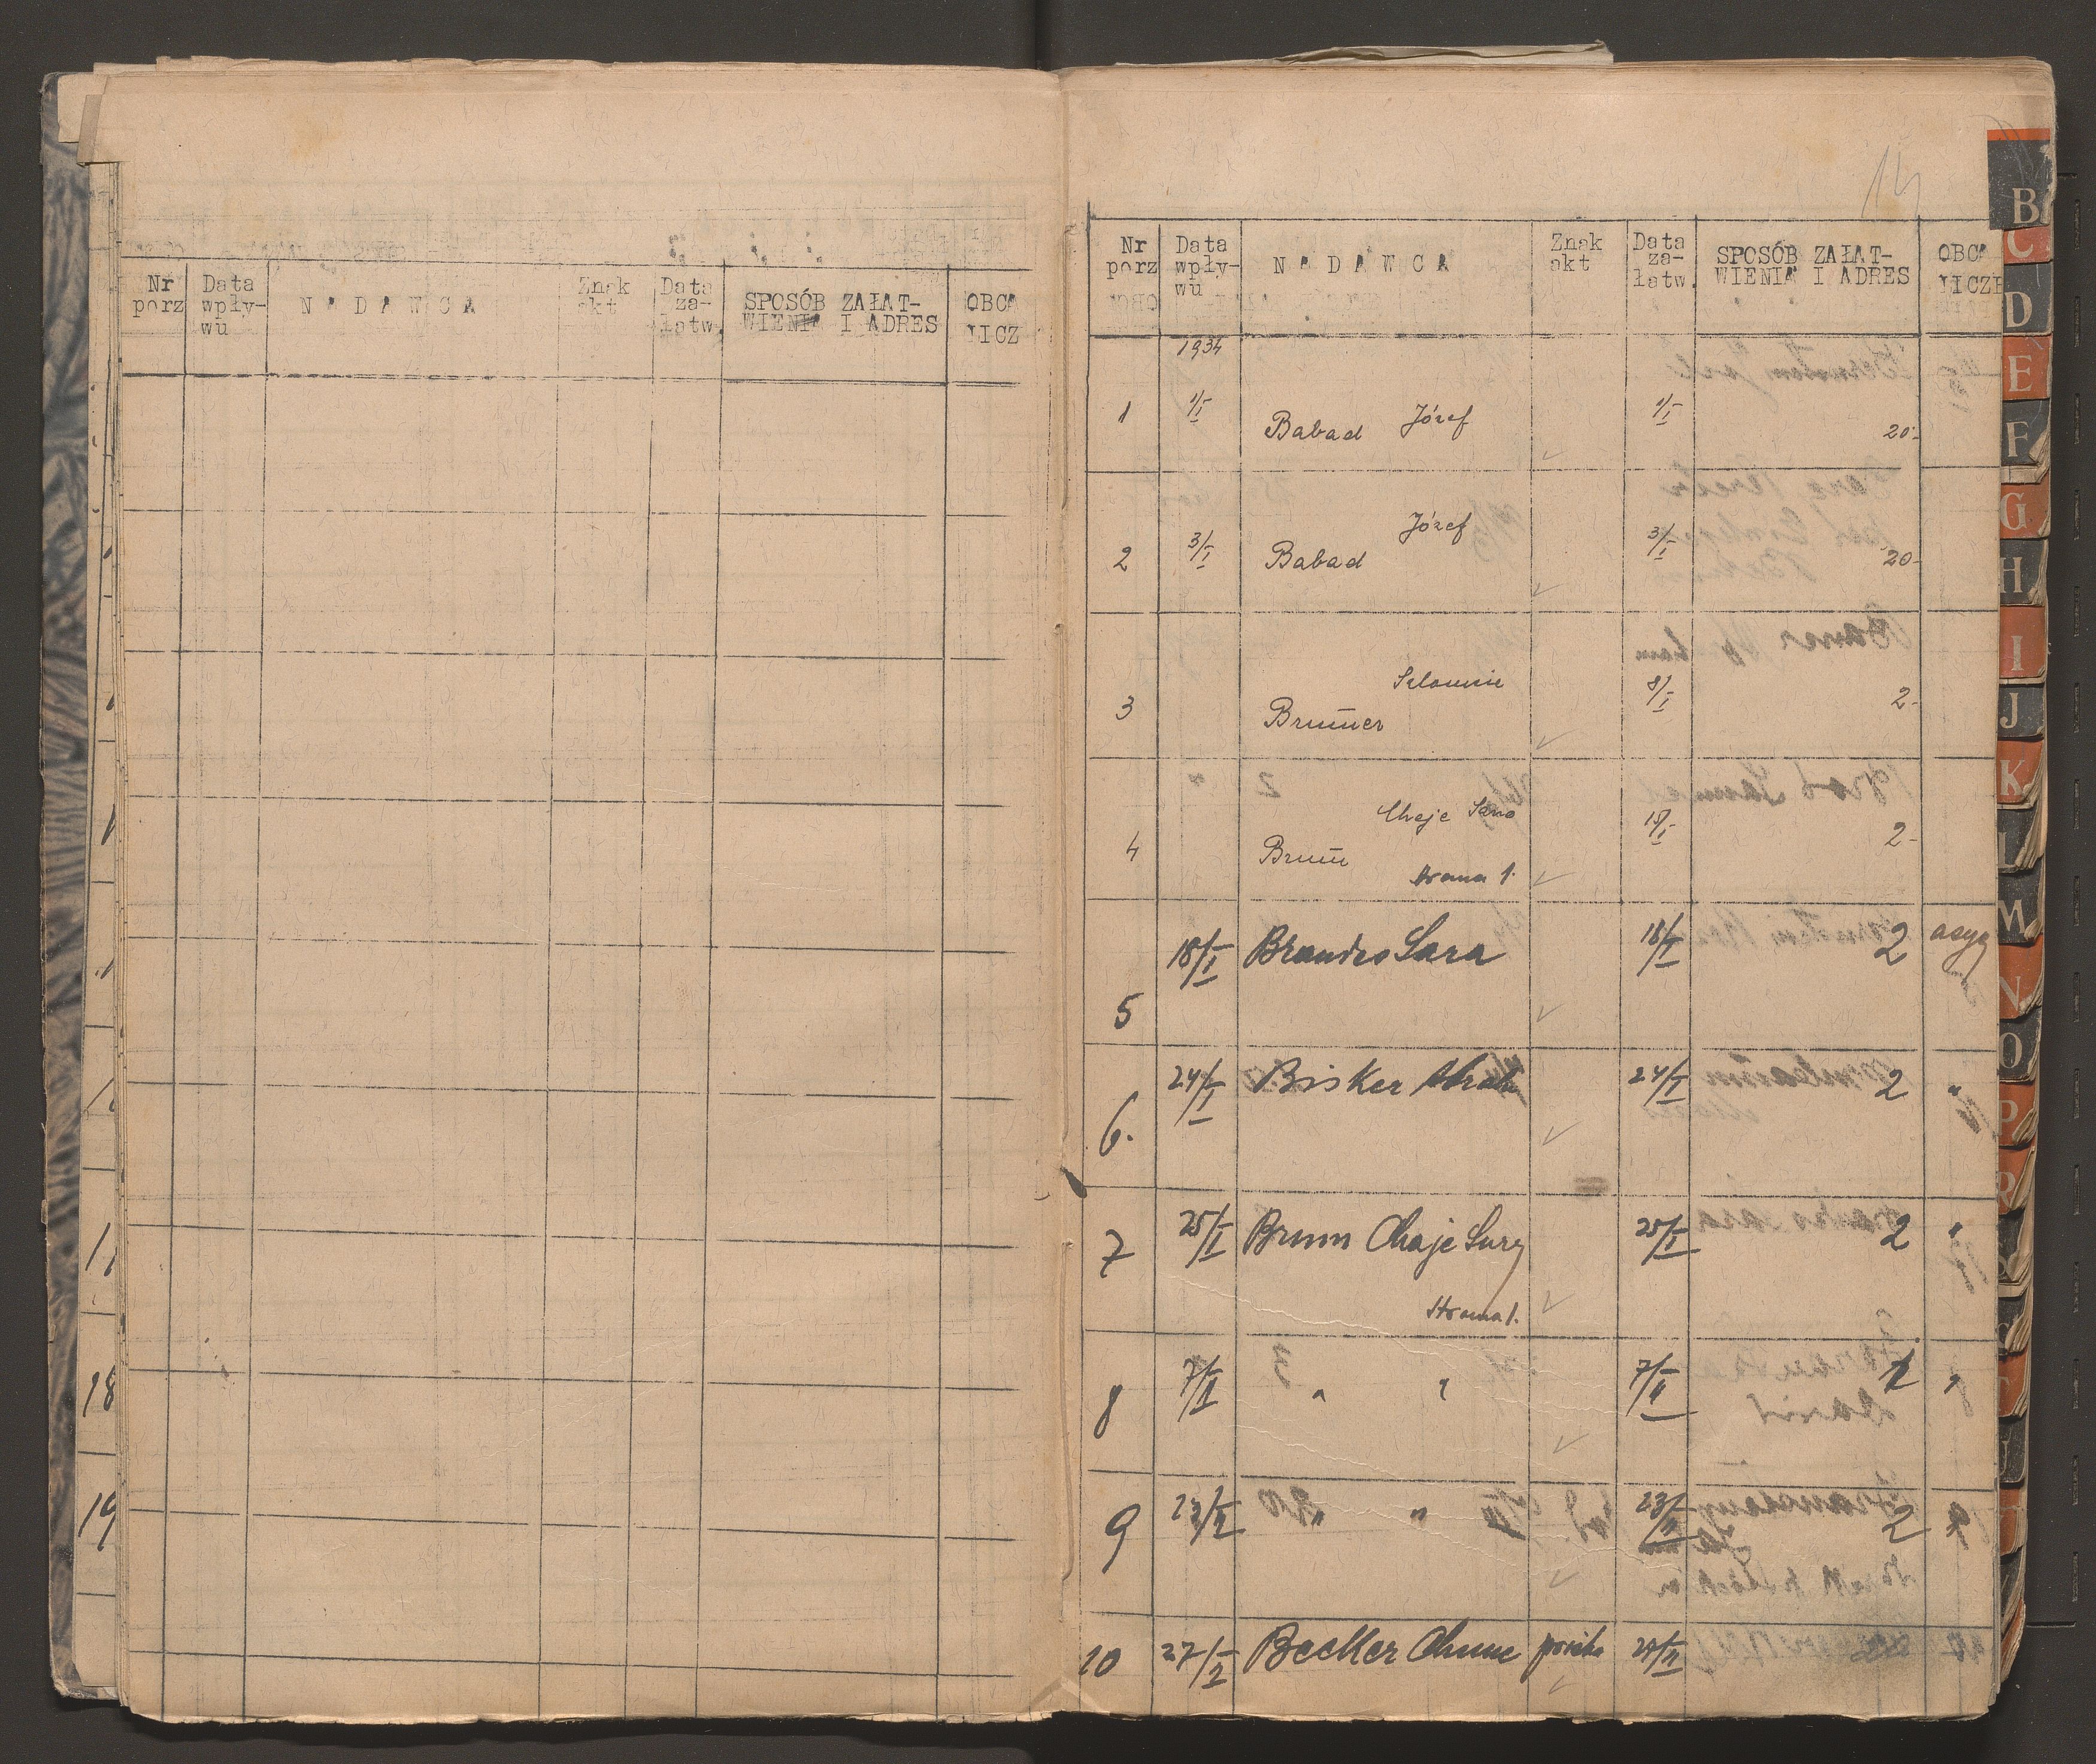 Nr porz
Data wpły-wu
N A D A W C A
Znak akt
Data za-łatw
SPOSÓB ZAŁAT-WIENIA I ADRES
OBCA
LICZ
18
19
14
Nr porz
Data wpły-wu
N A D A W C A
Znak akt
Data za-łatw.
SPOSÓB ZAŁAT-WIENIA I ADRES
OBCA
LICZB
1934
1 1/I Babad Józef 1/I 20-
2 3/I Babad Józef 3/I 20-
3 Brunner 8/I 2-
4 Brunn Chaje Sara 2-
5 18/I Brandes Sara 18/I 2 asyg
6. 24/I Bisker Abrah 24/I 2 "
7 25/I Brunn Chaje Sury 25/I 2 "
8 7/II " " 7/II "
9 23/II " " 23/II 2
10 27/2 Becker Chune
B
C
D
E
F
G
H
I
J
K
L
M
N
O
P
R